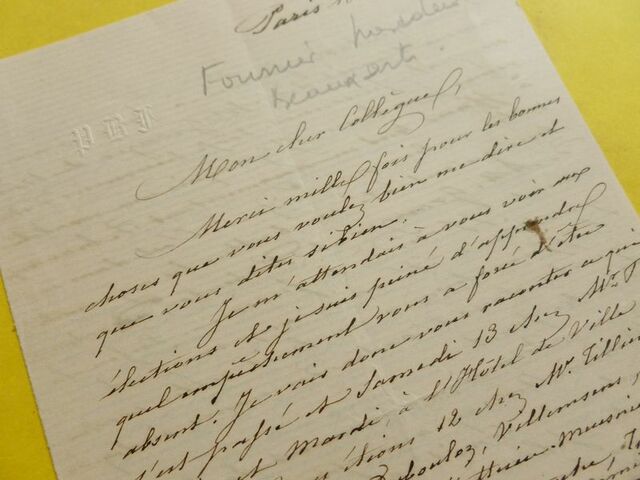 Paris
Fournier
Beaux arts.
PBF
Mon cher Collègue,
Merci mille fois pour les bonnes
choses que vous voulez bien me dire et
que vous dites si bien.
Je m'attendais à vous voir aux
élections et je suis peiné d'apprendre
quel empêchement vous a forcé d'être
absent. Je vais donc vous raconter ce qui
s'est passé et Samedi 13 chez Mr.
et Mardi, à l'Hôtel de Ville
étions 12 chez Mr.
Villemsens